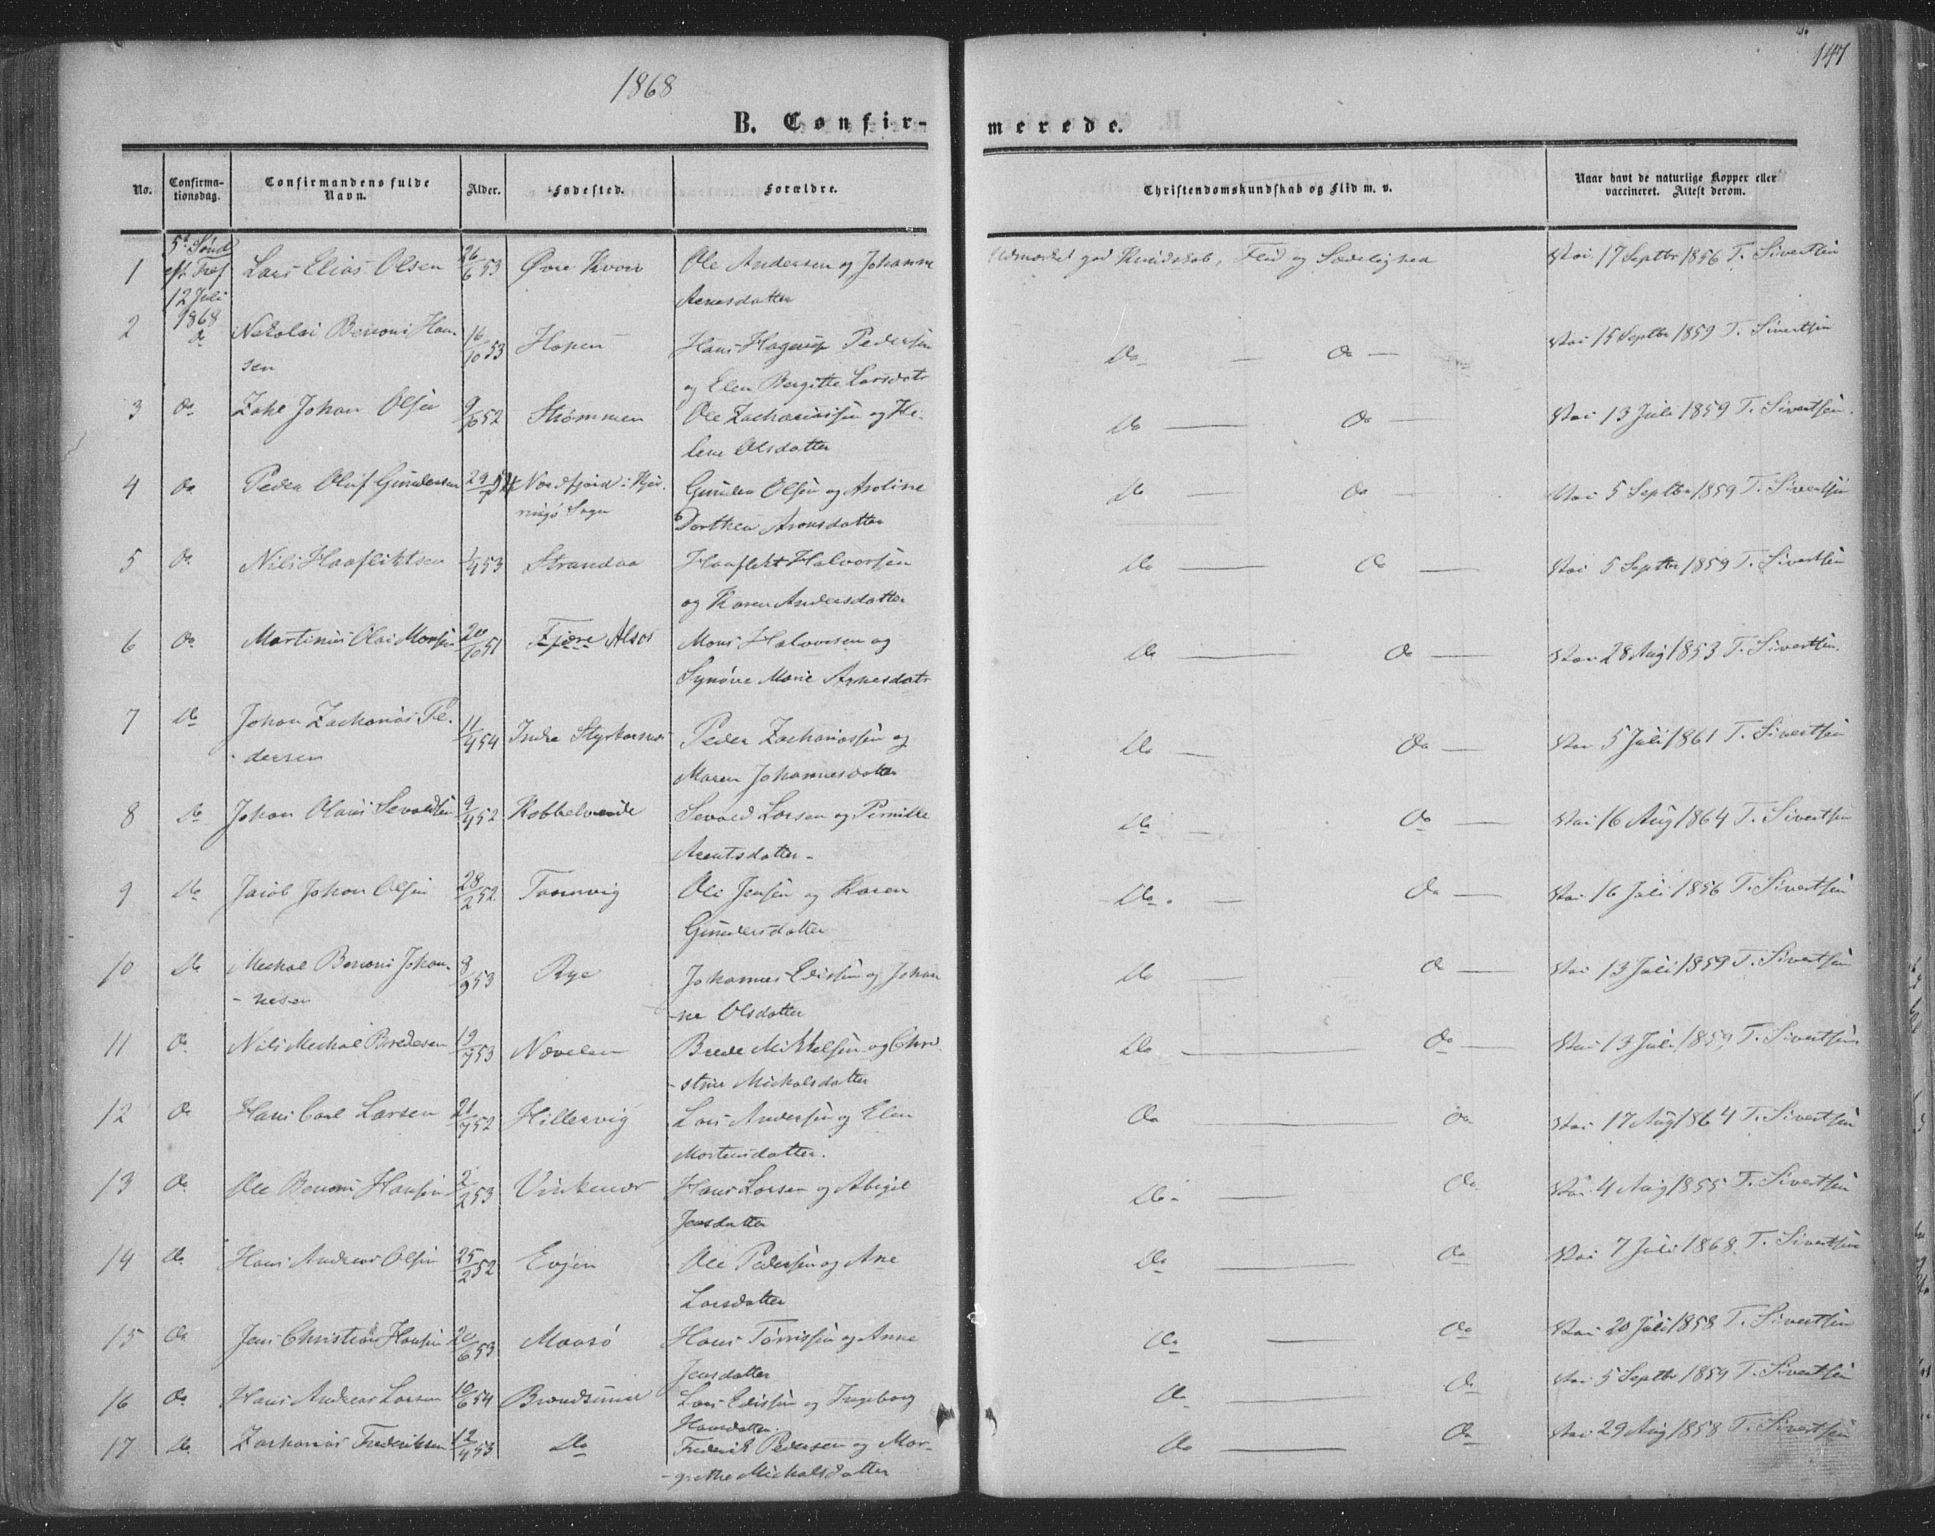 147
1868
B. Confir- merede.
No. Confirma-tionsdag. Confirmandens fulde Navn. Alder. Fødested. Forældre. Christendomskundskab og Flid m. v. Naar havt de naturlige Kopper eller vaccineret. Attest derom.
1 5te Sønd eft. Tref 12 Juli 1868 Lars Elias Olsen 26/6 53 Øvre Ole Andersen og Johanna Udmærket god Kundskab, Flid og Sædelighed Vac. 17 Septbr 1856 T. Sivertsen
Arnesdatter
2 Do Nikolai Benoni Han- 16/10 53 Hopen Hans Hagerup Pedersen Do — Do — Vac 15 Septbr 1859 T. Sivertsen
sen og Elen Bergitte Larsdatr
3 Do Zake Johan Olsen 9/10 52 Strømmen Ole Zachariassen og He- Do — Do — Vac 13 Juli 1859 T. Sivertsen.
lene Olsdatter
4 Do Peder Oluf Gundersen 29/7 Nordfjord i Kjer- Gunder Olsen og Do — Do — Vac 5 Septbr 1859 T. Sivertsen
ringø Sogn Dorthea Aronsdatter
5 Do Nils Haafliktsen 1/9 53 Strandaa Haaflikt Halvorsen Do — Do — Vac 5 Septbr 1859 T. Sivertsen
og Karen Andersdatter
6 Do Martinus Olai Monsen 20/10 51 Fjære Alsos Mons Halvorsen og Do — Do — Vac 28 Aug 1853 T. Sivertsen.
Synøve Marie Arnesdatr
7 Do Johan Zacharias Pe- 11/4 54 Indre Styrkesnes Peder Zachariassen og Do — Do — Vac 5 Juli 1861 T. Sivertsen
- dersen Maren Johannesdatter
8 Do Johan Olaus Sevaldsen 9/9 52 Kobbelveide Sevald Larsen og Pernille Do — Do — Vac 16 Aug 1864 T. Sivertsen
Arentsdatter
9 Do Jacob Johan Olsen 28/2 52 Tannvig Ole Jensen og Karen Do. — Do — Vac 16 Juli 1856 T. Sivertsen
Gundersdatter
10 Do Mechal Benoni Johan- 8/9 53 Bye Johannes Edissen og Johan Do — Do — Vac 13 Juli 1859 T. Sivertsen
- nesen -ne Olsdatter
11 Do Nils Mechal Bredesen 19/7 53 Nævelsn Brede Mikkelsen og Chri- Do — Do — Vac 13 Juli 1859 T. Sivertsen
- stine Michalsdatter
12 Do Hans Carl Larsen 21/7 52 Hillesvig Lars Andersen og Elen Do — Do Vac 17 Aug 1864 T. Sivertsen
Mortensdatter.
13 Do Ole Benoni Hansen 2/2 53 Vinkenes Hans Larsen og Abigel Do — Do Vac. 4 Aug 1855 T. Sivertsen
Jensdatter
14 Do Hans Andreas Olsen 25/2 52 Evjen Ole Pedersen og Ane Do — Do Vac 7 Juli 1868 T. Sivertsen
Larsdatter
15 Do Jens Christian Hansen 20/6 53 Maasø Hans Tørrissen og Anne Do — Do Vac 20 Juli 1858 T. Sivertsen
Jensdatter
16 Do Hans Andreas Larsen 10/6 54 Brændsund Lars Edissen og Ingeborg Do — Do Vac 5 Septbr 1859 T. Sivertsen
Hansdatter
17 Do Zacharias Frederiksen 12/4 53 Do Frederik Pedersen og Mar- Do — Do Vac 29 Aug 1858 T. Sivertsen
- grethe Michalsdatter